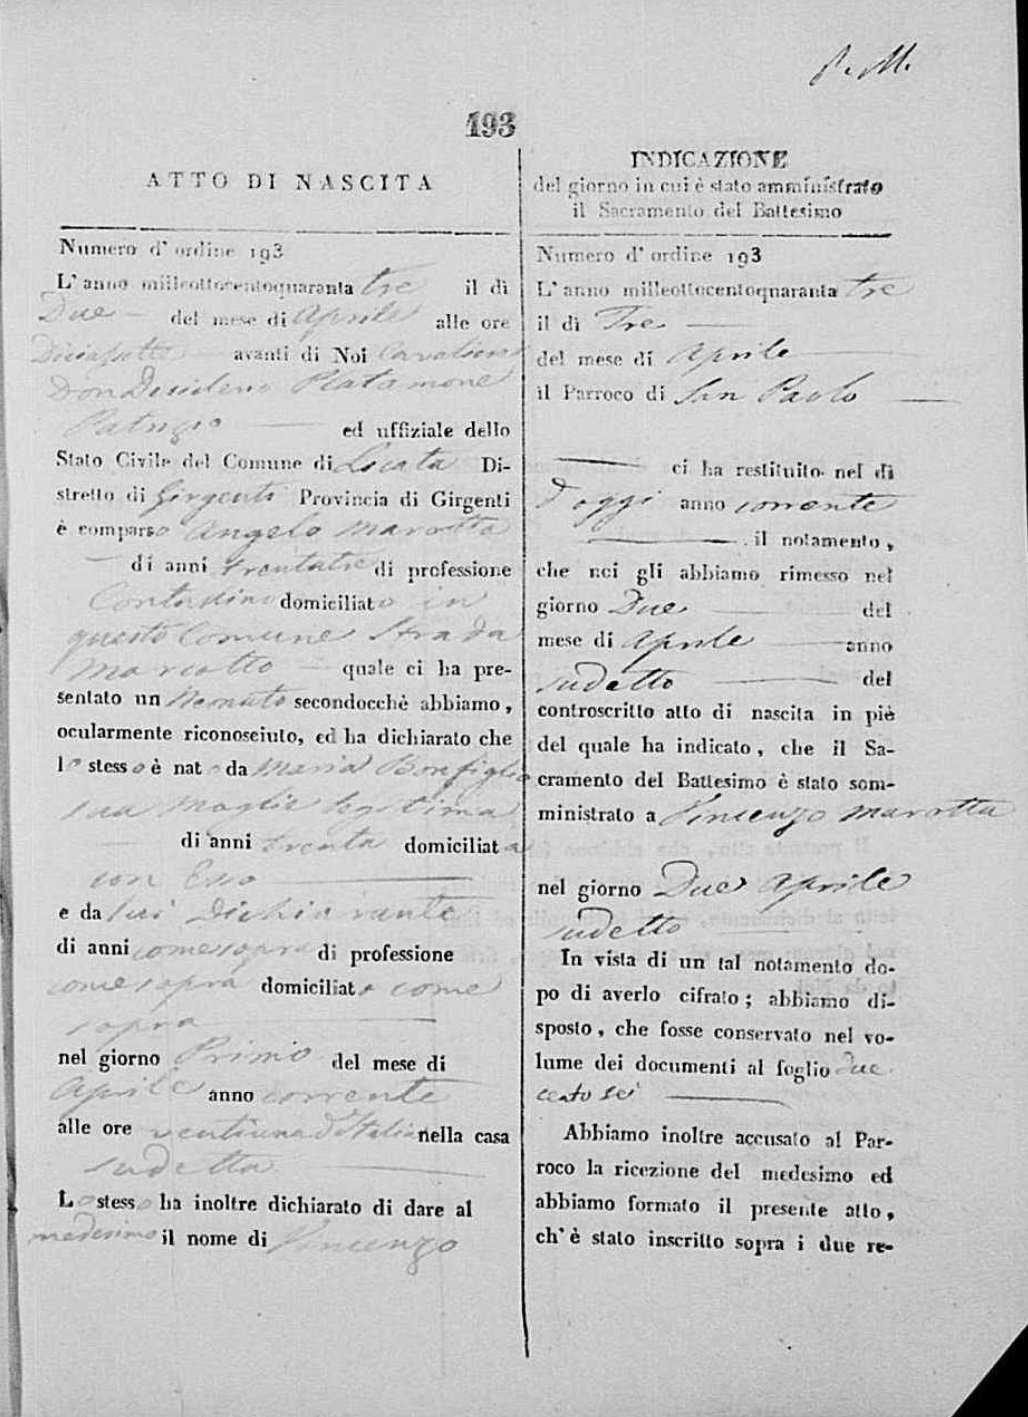 P. M.
193
ATTO DI NASCITA
Numero d' ordine 193
L' anno milleottocentoquaranta tre il dì
Due del mese di Aprile alle ore
Diciasette avanti di Noi Cavaliere
Don Desiderio Platamone
Patrizio ed uffiziale dello
Stato Civile del Comune di Licata Di-
stretto di Girgenti Provincia di Girgenti
è comparso Angelo Marotta
di anni trentatre di professione
Contadino domiciliato in
questo Comune Strada
Marcotto quale ci ha pre-
sentato un Neonato secondocchè abbiamo,
ocularmente riconosciuto, ed ha dichiarato che
lo stesso è nato da Maria Bonfiglio
sua moglie legitima
di anni trenta domiciliata
con Esso
e da lui Dichiarante
di anni come sopra di professione
come sopra domiciliato come
sopra
nel giorno Primo del mese di
Aprile anno corrente
alle ore ventiuna d'Italia nella casa
sudetta
Lo stesso ha inoltre dichiarato di dare al
medesimo il nome di Vincenzo
INDICAZIONE
del giorno in cui è stato amministrato
il Sacramento del Battesimo
Numero d' ordine 193
L' anno milleottocentoquaranta tre
il dì Tre
del mese di Aprile
il Parroco di San Paolo
ci ha restituito nel dì
d'oggi anno corrente
il notamento,
che noi gli abbiamo rimesso nel
giorno Due del
mese di Aprile anno
sudetto del
controscritto atto di nascita in piè
del quale ha indicato, che il Sa-
cramento del Battesimo è stato som-
ministrato a Vincenzo Marotta
nel giorno Due Aprile
sudetto
In vista di un tal notamento do-
po di averlo cifrato; abbiamo di-
sposto, che fosse conservato nel vo-
lume dei documenti al foglio due
cento sei
Abbiamo inoltre accusato al Par-
roco la ricezione del medesimo ed
abbiamo formato il presente atto,
ch' è stato inscritto sopra i due re-